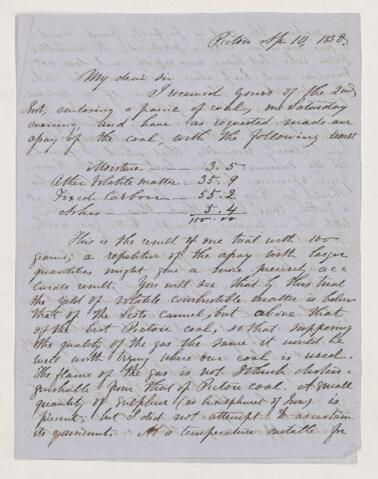 Pictou Ap. 14, 1858
My dear Sir
I received yours of the 2nd
Inst, enclosing a parcel of coal, on Saturday
evening and have as requested made an
assay of the coal, with the following result
Moisture — 3.5
Other Volatile matter — 35.9
Fixed Carbon — 55.2
Ashes — 5.4
100.00
This is the result of one trial with 100
grains; a repetition of the assay with larger
quantities might give a more precisely acc
urate result. You will see that by this trial
the yield of volatile combustible matter is below
that of the Scots cannel, but above that
of the best Pictou coal, so that supposing
the quality of the gas the same it would be
well worth trying where our coal is used.
The flame of the gas is not I think distin-
guishable from that of Pictou coal. A small
quantity of Sulphur (as Bisulphuret of Iron) is
present; but I did not attempt to ascertain
its amount. At a temperature suitable for